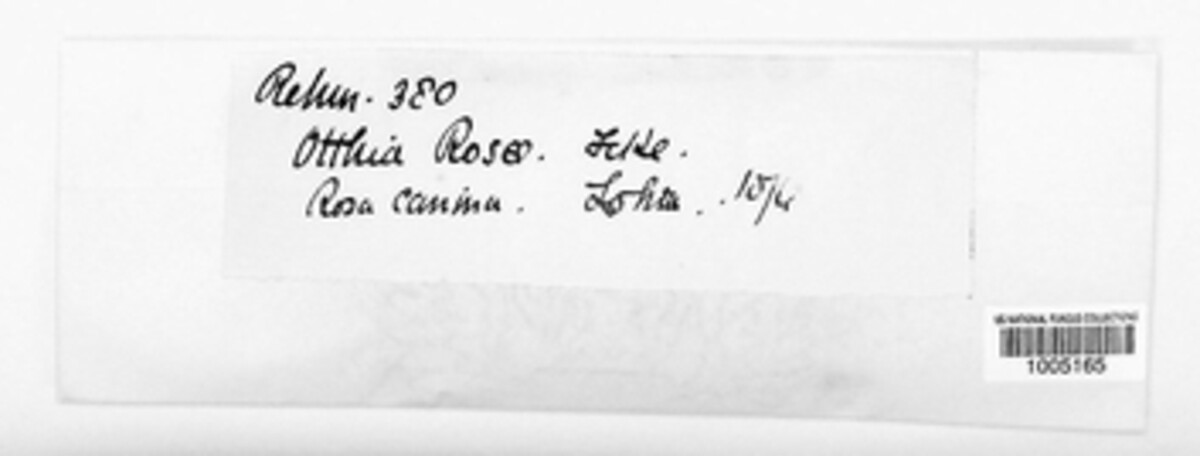 Rehm. 380
Otthia Rosae. Fckl.
Rosa canina. Lohra.
US NATIONAL FUNGUS COLLECTIONS
1005165